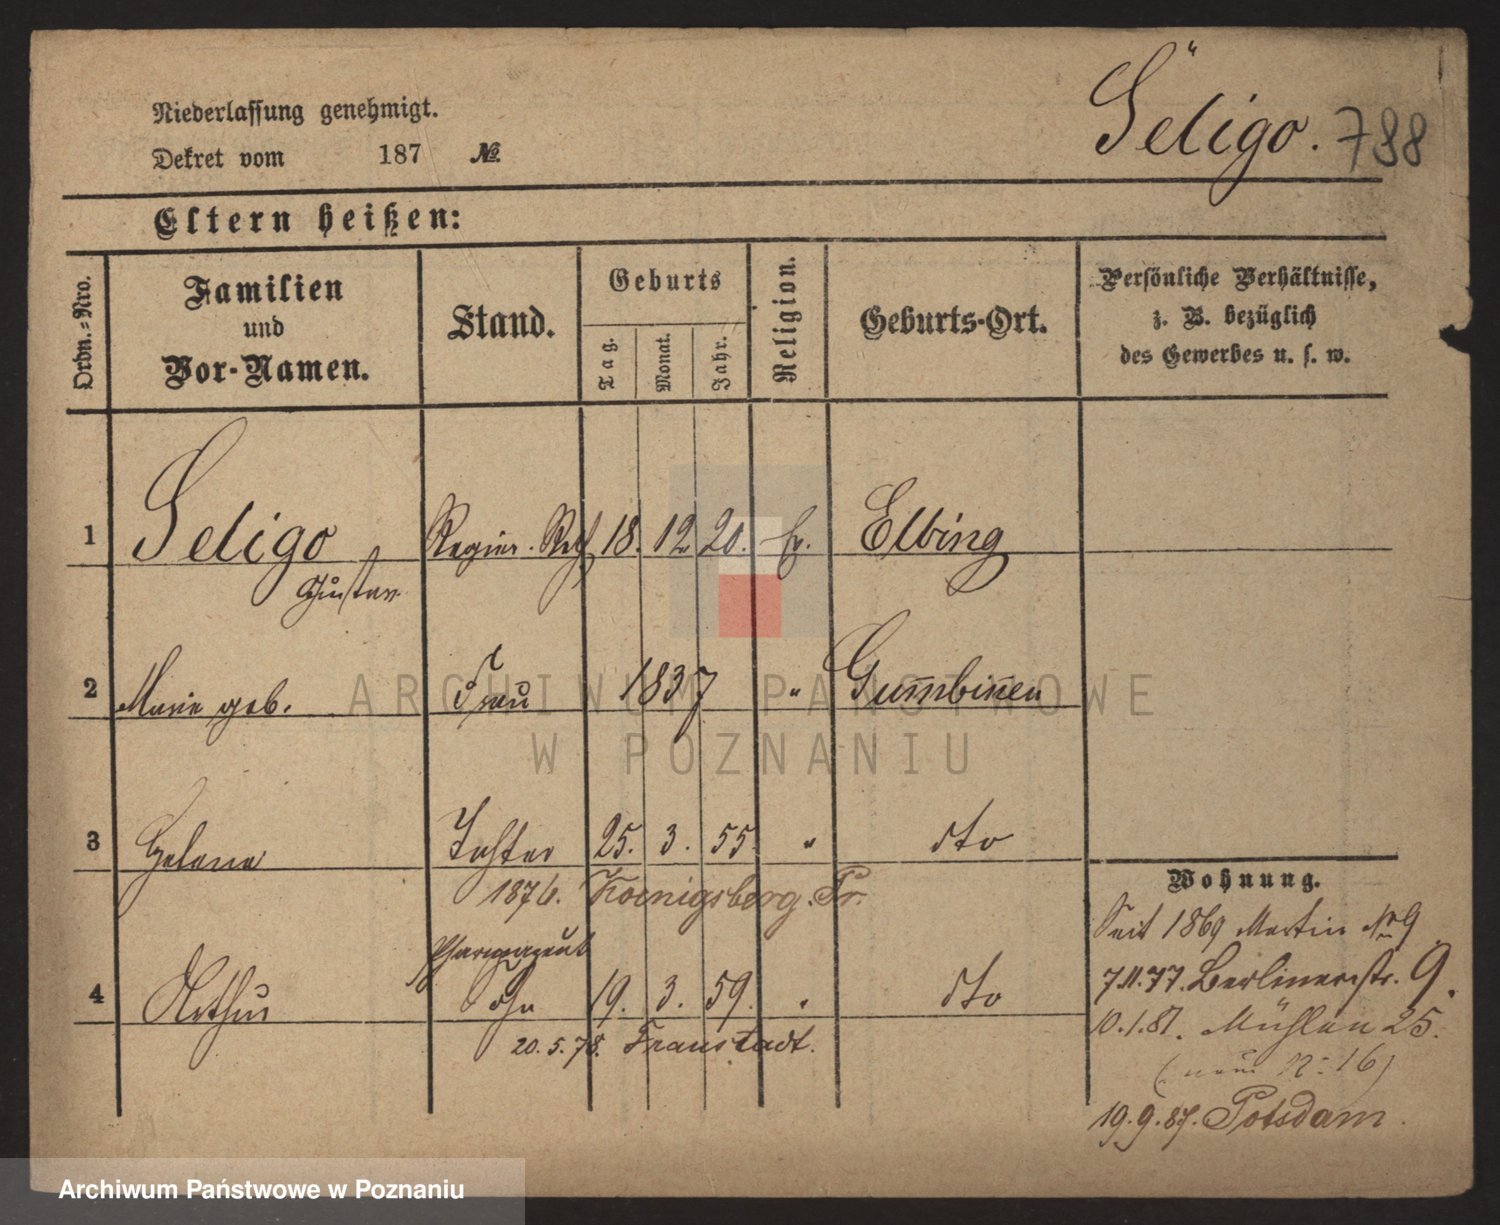 Niederlassung genehmigt.
Dekret vom 187 No.
Seligo. 788
Eltern heißen:
Ordn.=Nro.
Familien und Vor-Namen.
Stand.
Geburts
Tag.
Monat.
Jahr.
Religion.
Geburts-Ort.
Persönliche Verhältnisse,
z. B. bezüglich
des Gewerbes u. s. w.
1 Seligo Regier. Rth 18. 12 20. Ev. Elbing
Gustav
2 Marie geb. Frau 1837 " Gumbinen
3 Helene Tochter 25. 3. 55. " dto
1876. Koenigsberg. Pr.
Pharmazeut
4 Arthur Sohn 19. 3. 59. " dto
20. 5. 78. Fraustadt.
Wohnung.
Seit 1869 Martin No 9
7.11.77. Berlinerstr. 9.
10.1.81. Mühlen 25.
(neue N: 16)
19.9.87. Potsdam.
ARCHIWUM PAŃSTWOWE
W POZNANIU
Archiwum Państwowe w Poznaniu